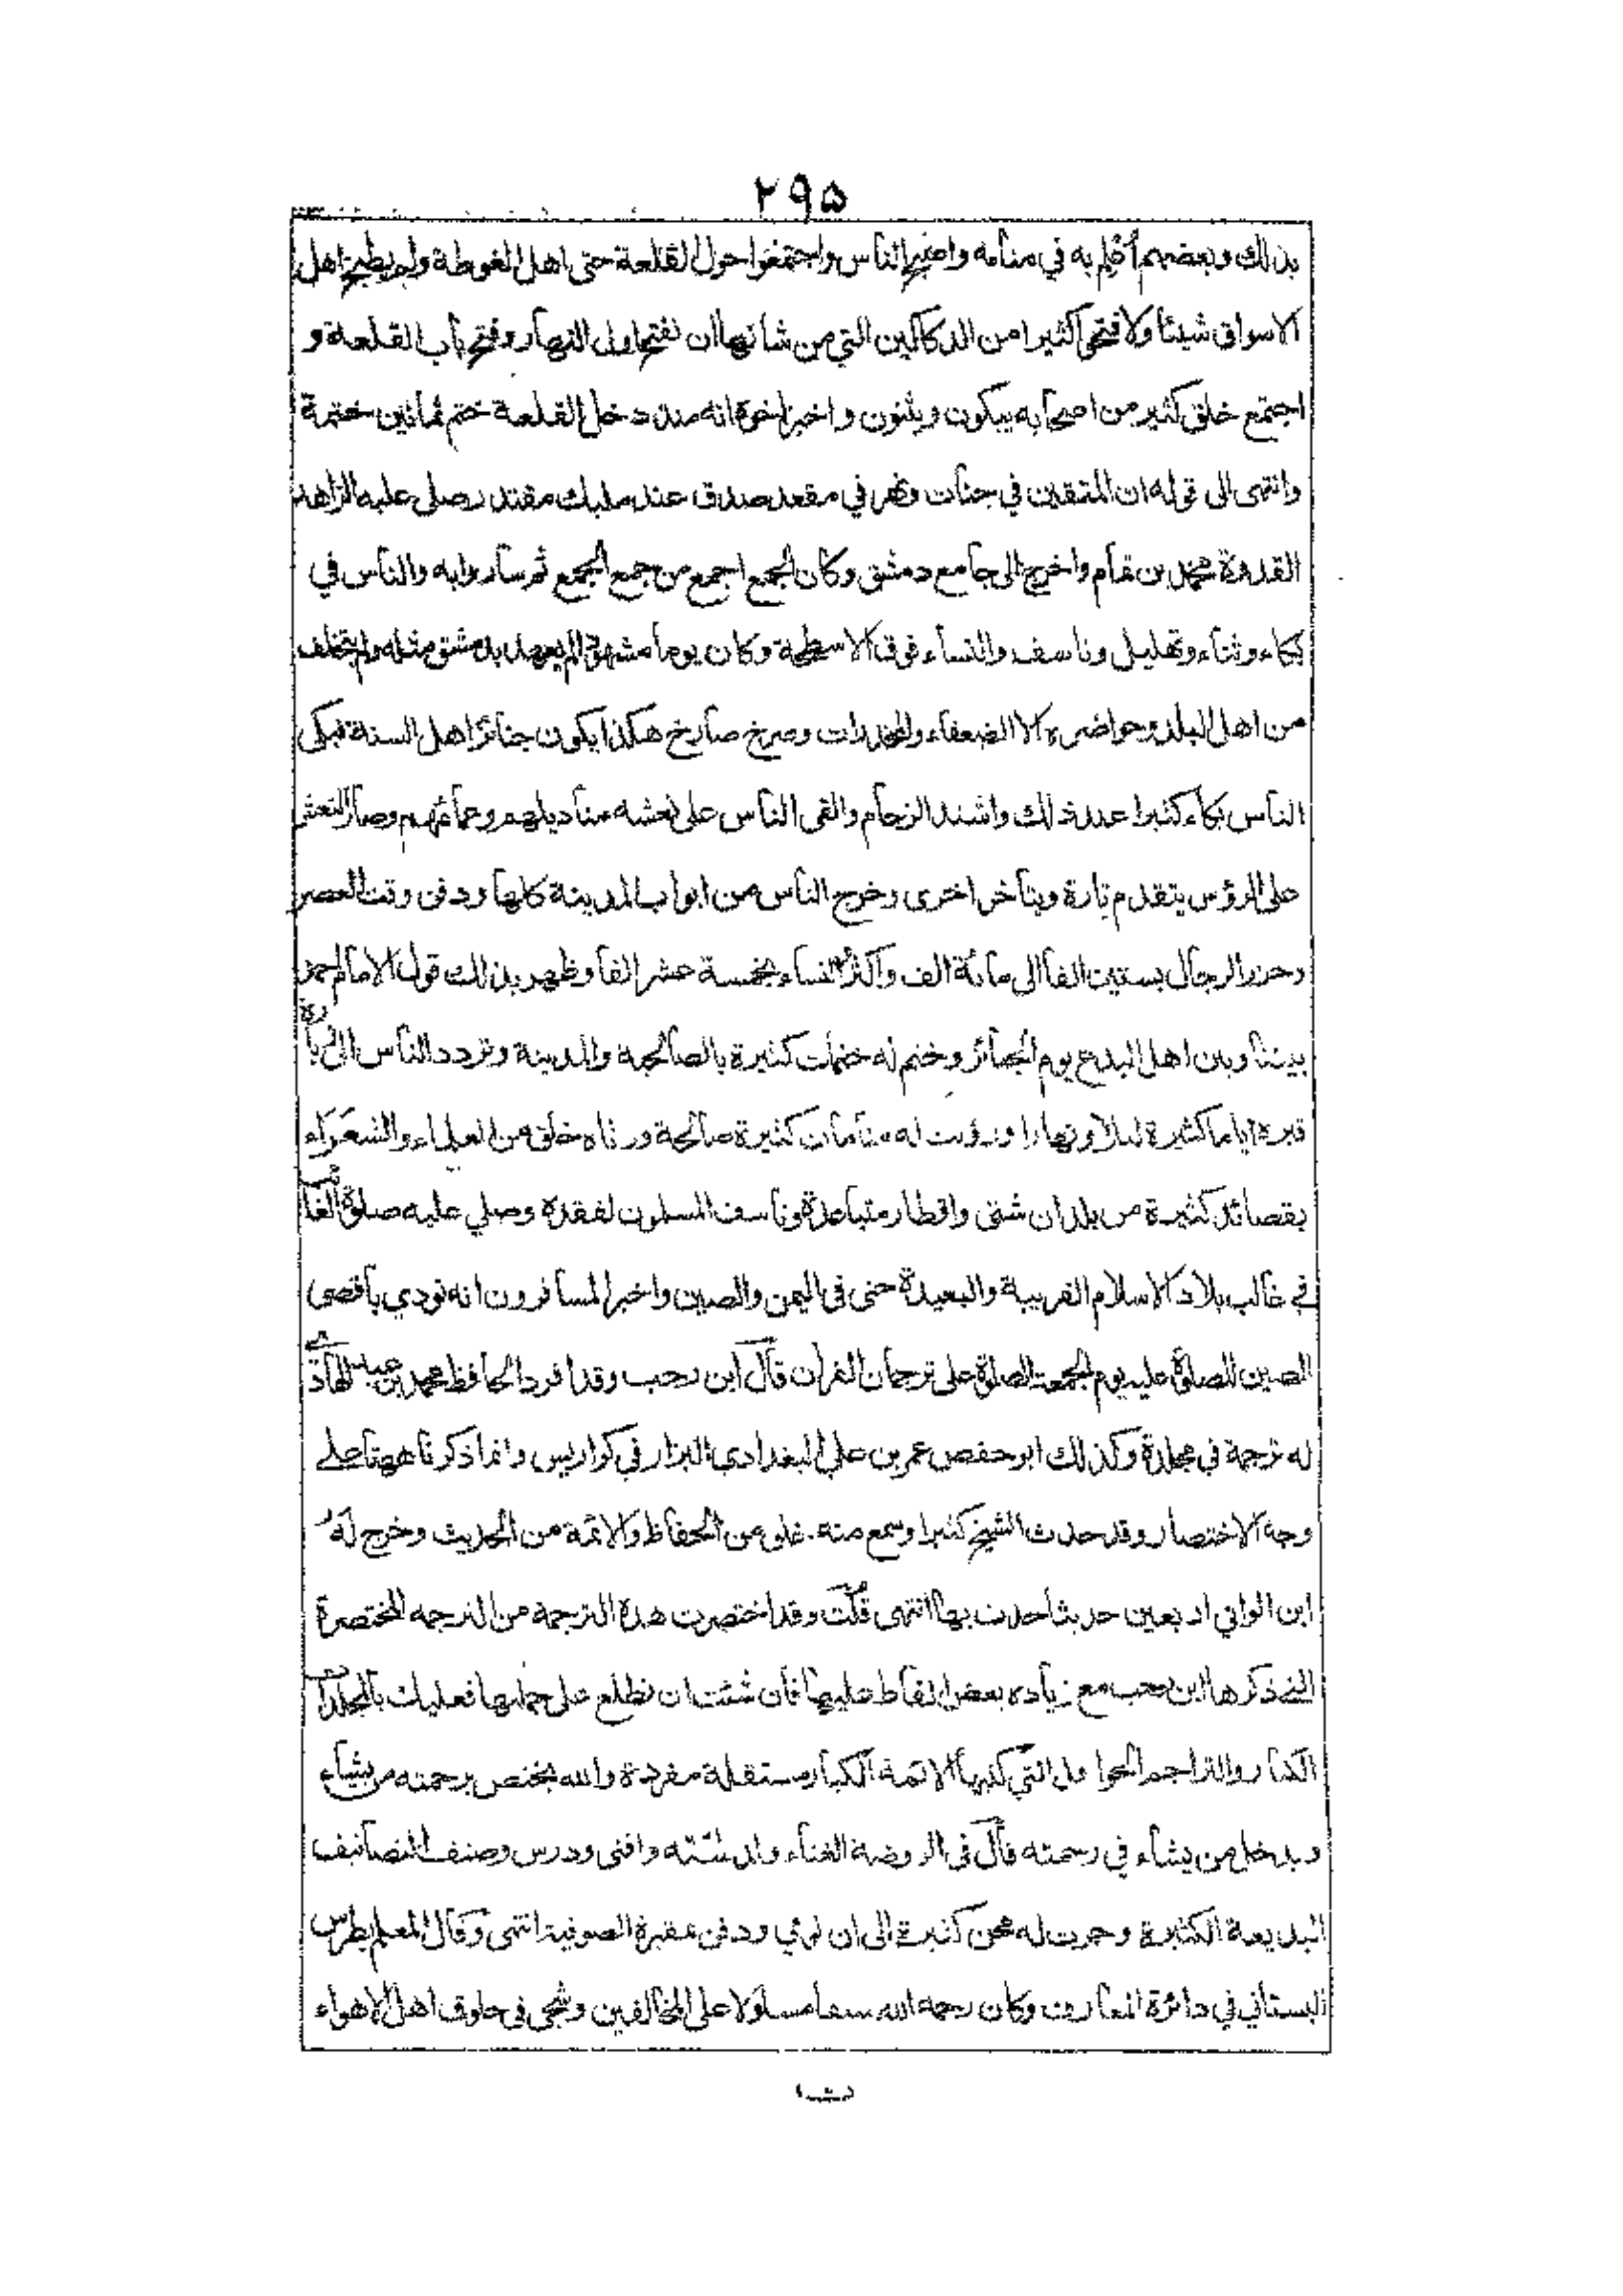 ٢٩٥
بذلك وبعضهم أعلم به في منامه واصبح الناس واجتمعوا حول القلعة حتى اهل الغوطة ولم يطبخ اهل
الاسواق شيئا ولا فتحوا كثيرا من الدكاكين التي من شانها ان تفتح اول النهار وفتح باب القلعة و
اجتمع خلق كثير من اصحابه يبكون ويثنون واخبر اخوه انه منذ دخل القلعة ختم ثمانين ختمة
وانتهى الى قوله ان المتقين في جنات ونهر في مقعد صدق عند مليك مقتدر صلى عليه الزاهد
القدوة محمد بن تمام واخرج الى جامع دمشق وكان الجمع اجمع من جمع الجمع ثم ساروا به والناس في
بكاء وثناء وتهليل وتاسف والنساء فوق الاسطحة وكان يوما مشهودا لم يعهد بدمشق مثله ولم يتخلف
من اهل البلد وحواضره الا الضعفاء والمخدرات وصرخ صارخ هكذا يكون جنائز اهل السنة فبكى
الناس بكاء كثيرا عند ذلك واشتد الزحام والقى الناس على نعشه مناديلهم وعمائمهم وصار النعش
على الرؤس يتقدم تارة ويتأخر اخرى وخرج الناس من ابواب المدينة كلها ودفن وقت العصر
وحزر الرجال بستين الفا الى مائة الف واكثر النساء بخمسة عشر الفا وظهر بذلك قول الامام احمد
بيننا وبين اهل البدع يوم الجنائز وختم له ختمات كثيرة بالصالحية والمدينة وتردد الناس الى زيارة
قبره اياما كثيرة ليلا ونهارا ورؤيت له منامات كثيرة صالحة ورثاه خلق من العلماء والشعراء
بقصائد كثيرة من بلدان شتى واقطار متباعدة وتاسف المسلمون لفقده وصلي عليه صلوة الغائب
في غالب بلاد الاسلام القريبة والبعيدة حتى في اليمن والصين واخبر المسافرون انه نودي باقصى
الصين للصلوة عليه يوم الجمعة الصلوة على ترجمان القرآن قال ابن رجب وقد افرد الحافظ محمد بن عبد الهادي
له ترجمة في مجلدة وكذلك ابو حفص عمر بن علي البغدادي البزار في كواريس وانما ذكرنا ههنا على
وجه الاختصار وقد حدث الشيخ كثيرا وسمع منه خلق من الحفاظ والائمة من الحديث وخرج له
ابن الواني اربعين حديثا حدث بها انتهى قلت وقد اختصرت هذه الترجمة من الترجمه المختصرة
التي ذكرها ابن رجب مع زياده بعض الفاظ عليها فان شئت ان تطلع على جملها فعليك بالمجلدات
الكبار والتراجم الطوال التي كتبها الائمة الكبار مستقلة مفردة والله يختص برحمته من يشاء
ويدخل من يشاء في رحمته قال في الروضة الغناء وافتى ودرس وصنف التصانيف
البديعة الكثيرة وجرت له محن كثيرة الى ان توفي ودفن بمقبرة الصوفية انتهى وقال المعلم بطرس
البستاني في دائرة المعارف وكان رحمه الله سيفا مسلولا على المخالفين وشجى في حلوق اهل الاهواء